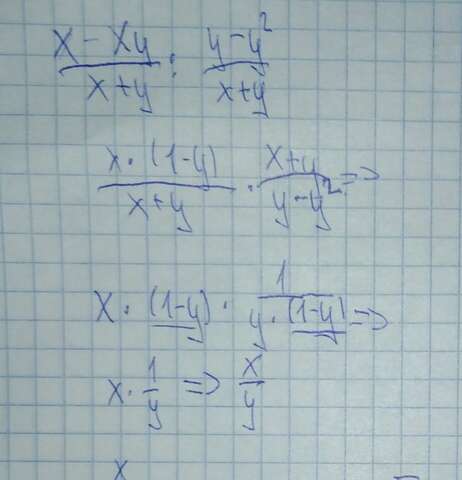 x - xy / x + y : y - y² / x + y
x · (1 - y) / x + y · x + y / y - y² =>
x · (1 - y) · 1 / y · (1 - y) =>
x · 1 / y => x / y
x